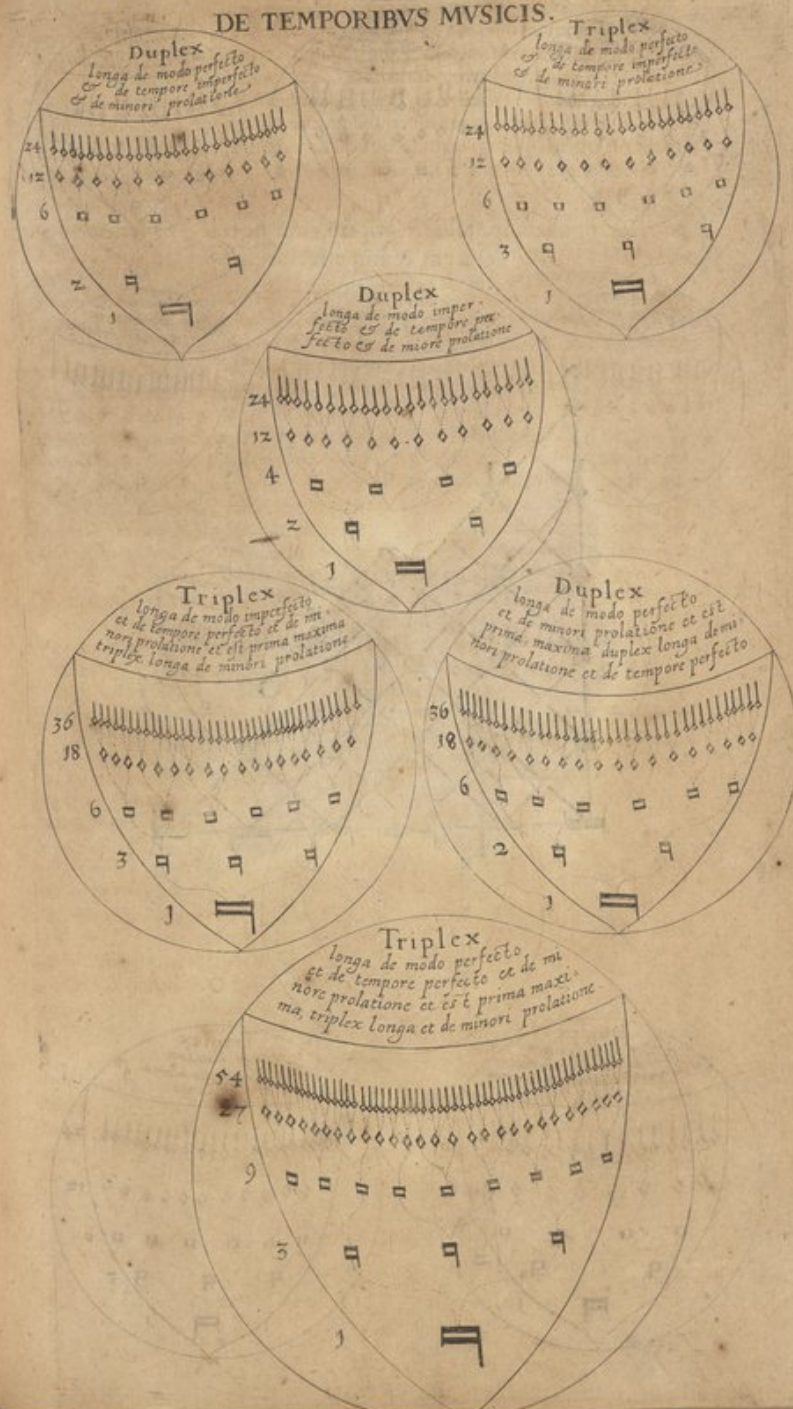 DE TEMPORIBVS MVSICIS.
Duplex
longa de modo perfecto
& de tempore imperfecto
& de minori prolatione
24
12
6
2
1
Triplex
longa de modo perfecto
& de tempore imperfecto
& de minori prolatione
24
12
6
3
1
Duplex
longa de modo imper-
fecto & de tempore per-
fecto & de miore prolatione
24
12
4
2
1
Triplex
longa de modo imperfecto
et de tempore perfecto et de mi-
nori prolatione et est prima maxima
triplex longa de minori prolatione
36
18
6
3
1
Duplex
longa de modo perfecto
et de minori prolatione et est
prima, maxima duplex longa de mi-
nori prolatione et de tempore perfecto
36
18
6
2
1
Triplex
longa de modo perfecto
et de tempore perfecto et de mi
nore prolatione et est prima maxi-
ma, triplex longa et de minori prolatione
54
27
9
3
1